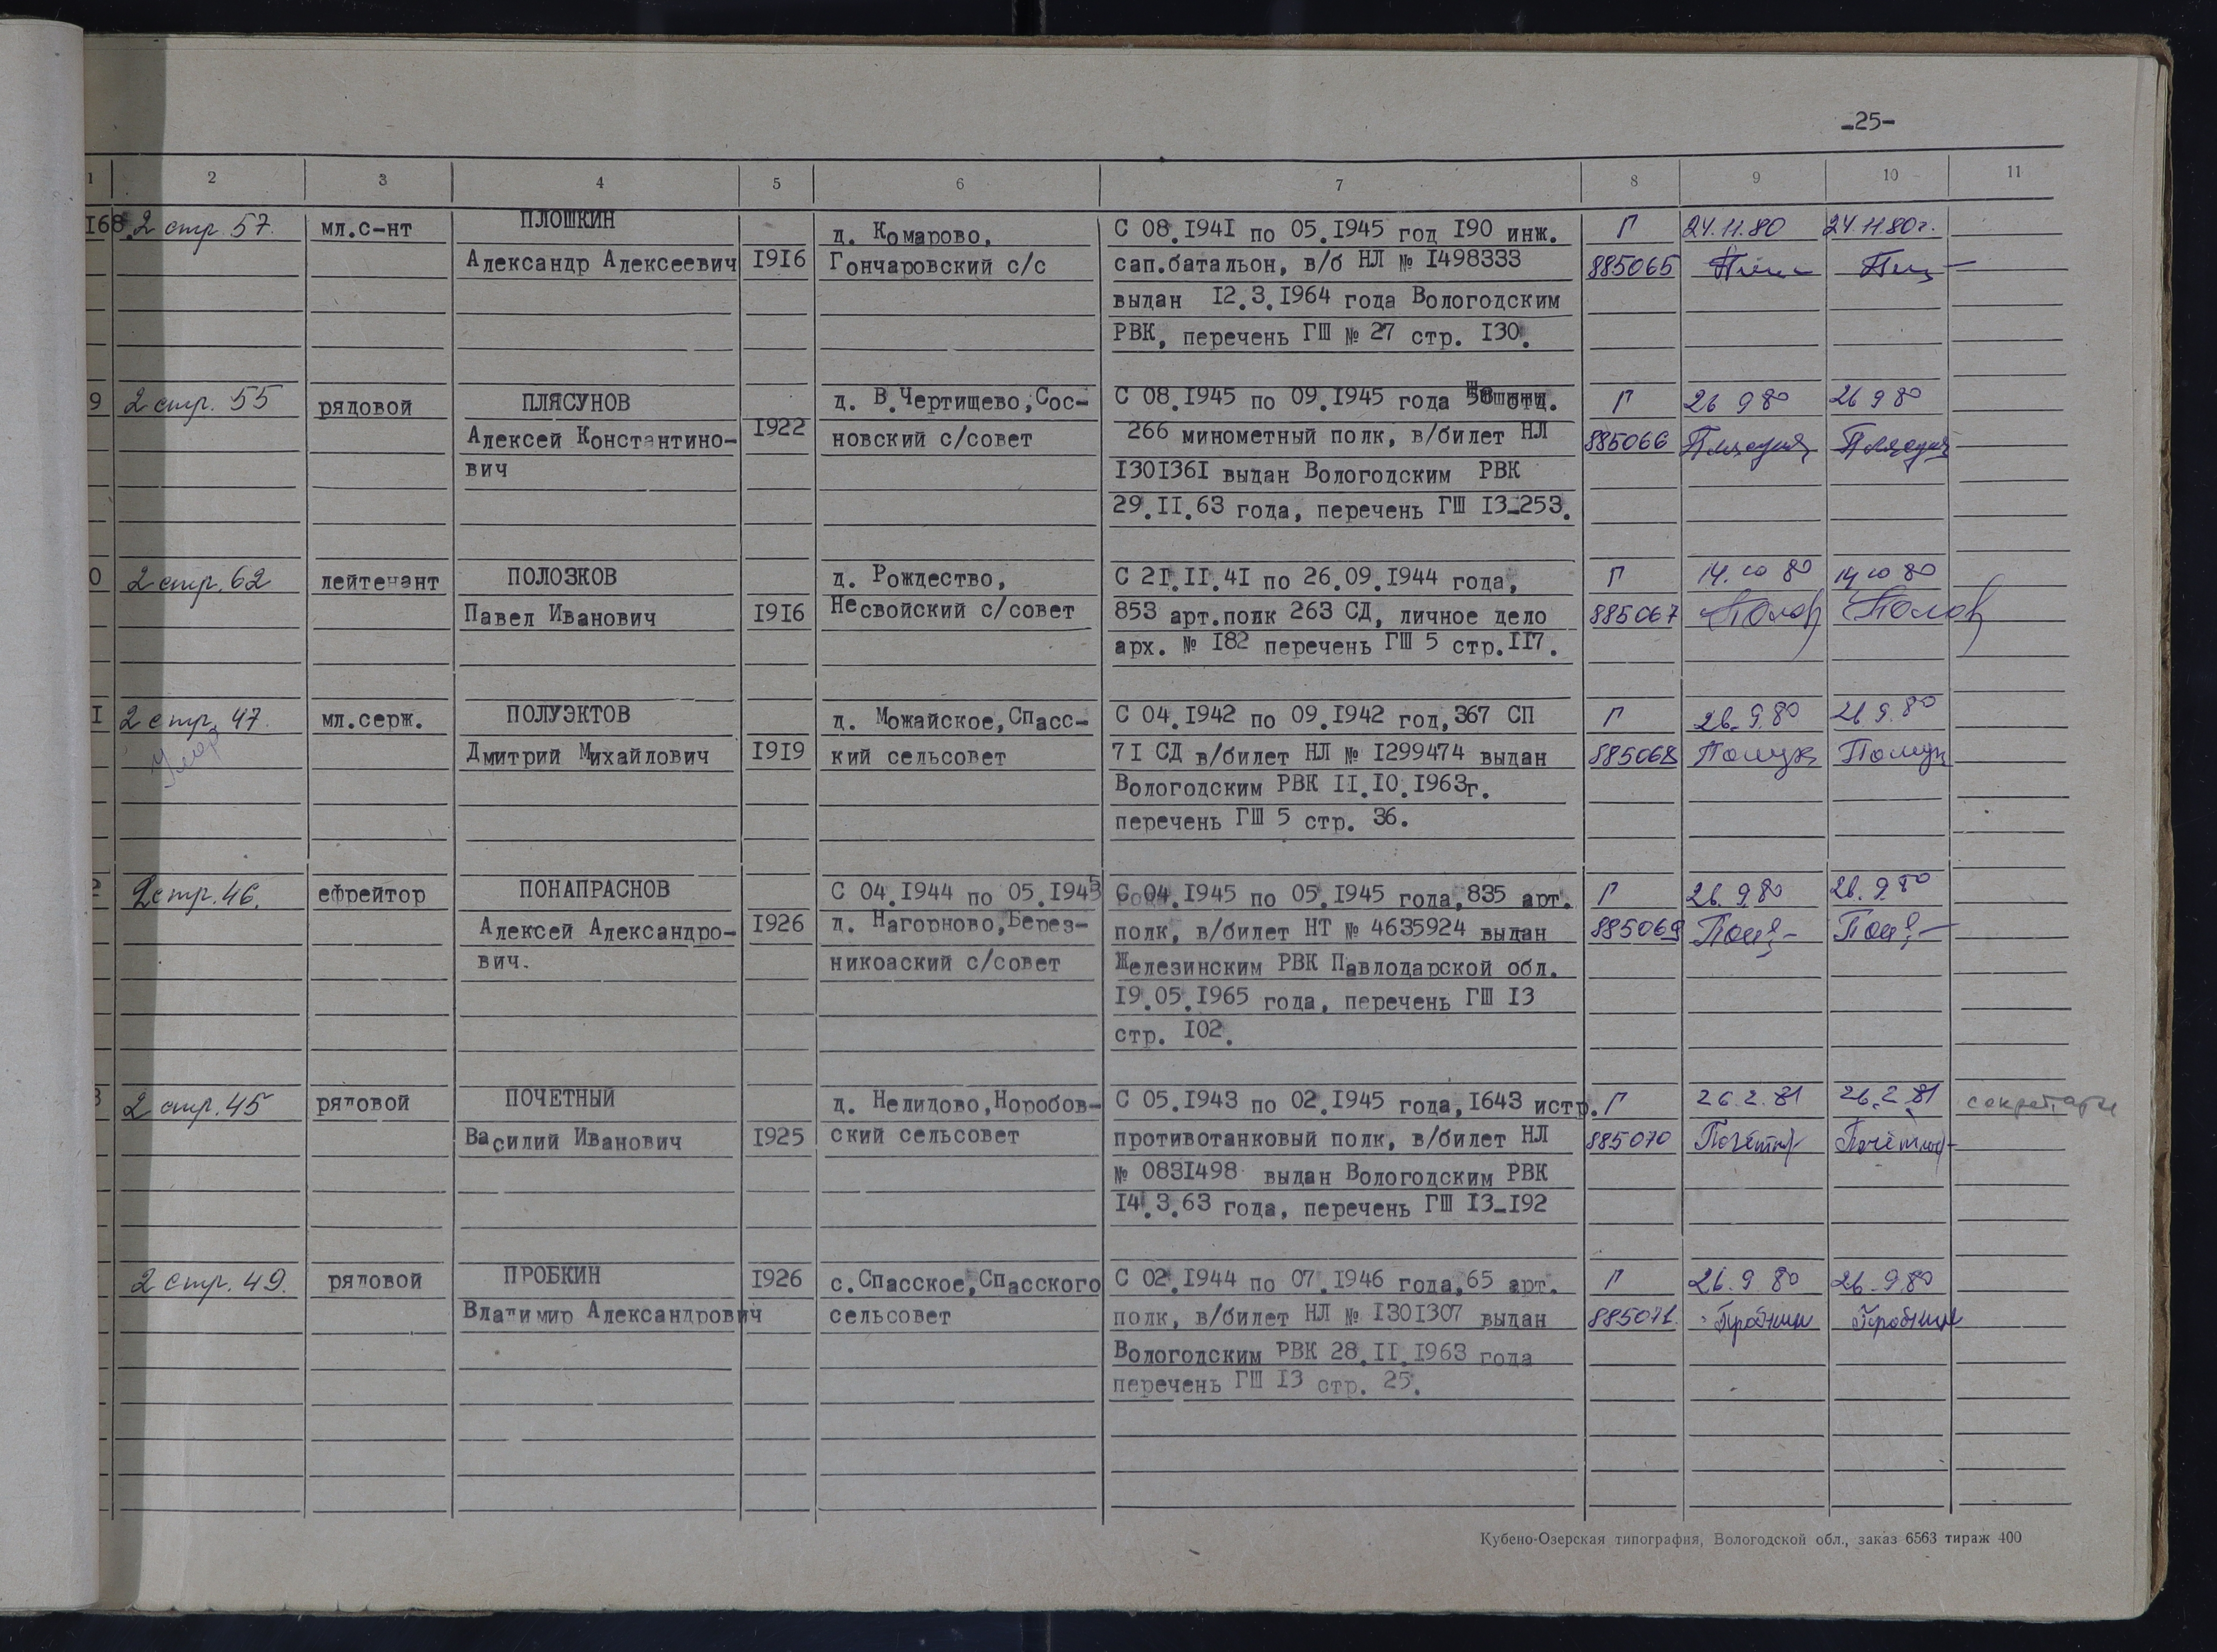 -25-
1 2 3 4 5 6 7 8 9 10 11
168. 2 стр. 57. мл.с-нт ПЛОШКИН д. Комарово, С 08.1941 по 05.1945 год 190 инж. Г 24.11.80 24.11.80г.
Александр Алексеевич 1916 Гончаровский с/с сап.батальон, в/б НЛ № 1498333 885065
выдан 12.3.1964 года Вологодским
РВК, перечень ГШ № 27 стр. 130.
9 2 стр. 55 рядовой ПЛЯСУНОВ д. В.Чертищево, Сос- С 08.1945 по 09.1945 года отд. Г 26 9 80 26 9 80
Алексей Константино- 1922 новский с/совет 266 минометный полк, в/билет НЛ 885066
вич 1301361 выдан Вологодским РВК
29.11.63 года, перечень ГШ 13-253.
0 2 стр. 62 лейтенант ПОЛОЗКОВ д. Рождество, С 21.11.41 по 26.09.1944 года, Г 14.10 80 14 10 80
Павел Иванович 1916 Несвойский с/совет 853 арт.полк 263 СД, личное дело 885067 Полоз Полоз
арх. № 182 перечень ГШ 5 стр.117.
1 2 стр. 47. мл.серж. ПОЛУЭКТОВ д. Можайское, Спасс- С 04.1942 по 09.1942 год, 367 СП Г 26.9.80 26.9.80
Умер Дмитрий Михайлович 1919 кий сельсовет 71 СД в/билет НЛ № 1299474 выдан 885068 Полуэк Полуэк
Вологодским РВК 11.10.1963г.
перечень ГШ 5 стр. 36.
2 2 стр. 46. ефрейтор ПОНАПРАСНОВ С 04.1944 по 05.1945 С 04.1945 по 05.1945 года, 835 арт. Г 26.9.80 26.9.80
Алексей Александро- 1926 д. Нагорново, Берез- полк, в/билет НТ № 4635924 выдан 885069
вич. никоаский с/совет Железинским РВК Павлодарской обл.
19.05.1965 года, перечень ГШ 13
стр. 102.
3 2 стр. 45 рядовой ПОЧЕТНЫЙ д. Нелидово, Норобов- С 05.1943 по 02.1945 года, 1643 истр. Г 26.2.81 26.2.81 секретарь
Василий Иванович 1925 ский сельсовет противотанковый полк, в/билет НЛ 885070
№ 0831498 выдан Вологодским РВК
14.3.63 года, перечень ГШ 13-192
2 стр. 49. рядовой ПРОБКИН 1926 с.Спасское, Спасского С 02.1944 по 07.1946 года, 65 арт. Г 26.9 80 26.9.80
Владимир Александрович сельсовет полк, в/билет НЛ № 1301307 выдан 885071. Пробкин Пробкин
Вологодским РВК 28.11.1963 года
перечень ГШ 13 стр. 25.
Кубено-Озерская типография, Вологодской обл., заказ 6563 тираж 400